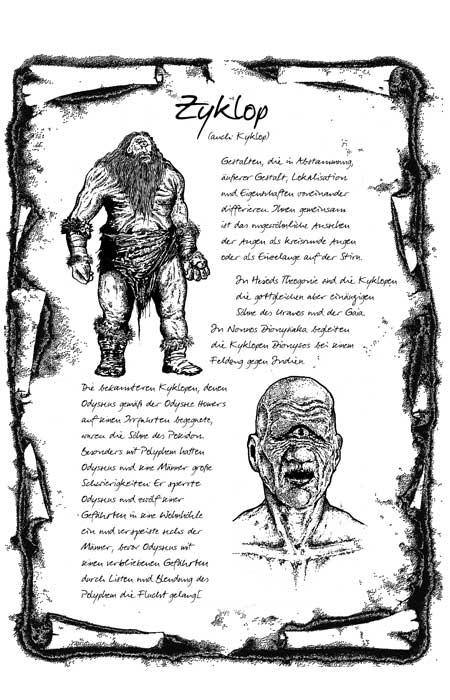 Zyklop
(auch: Kyklop)
Gestalten, die in Abstammung,
äußerer Gestalt, Lokalisation
und Eigenschaften voneinander
differieren. Ihnen gemeinsam
ist das ungewöhnliche Aussehen
der Augen als kreisrunde Augen
oder als Einzelauge auf der Stirn.
In Hesiods Theogonie sind die Kyklopen
die gottgleichen aber einäugigen
Söhne des Uranos und der Gaia.
In Nonnos Dionysiaka begleiten
die Kyklopen Dionysos bei seinem
Feldzug gegen Indien.
Die bekannteren Kyklopen, denen
Odysseus gemäß der Odysee Homers
auf seinen Irrfahrten begegnete,
waren die Söhne des Poseidon.
Besonders mit Polyphem hatten
Odysseus und seine Männer große
Schwierigkeiten: Er sperrte
Odysseus und zwölf seiner
Gefährten in seine Wohnhöhle
ein und verspeiste sechs der
Männer, bevor Odysseus mit
seinen verbliebenen Gefährten
durch Listen und Blendung des
Polyphem die Flucht gelang[